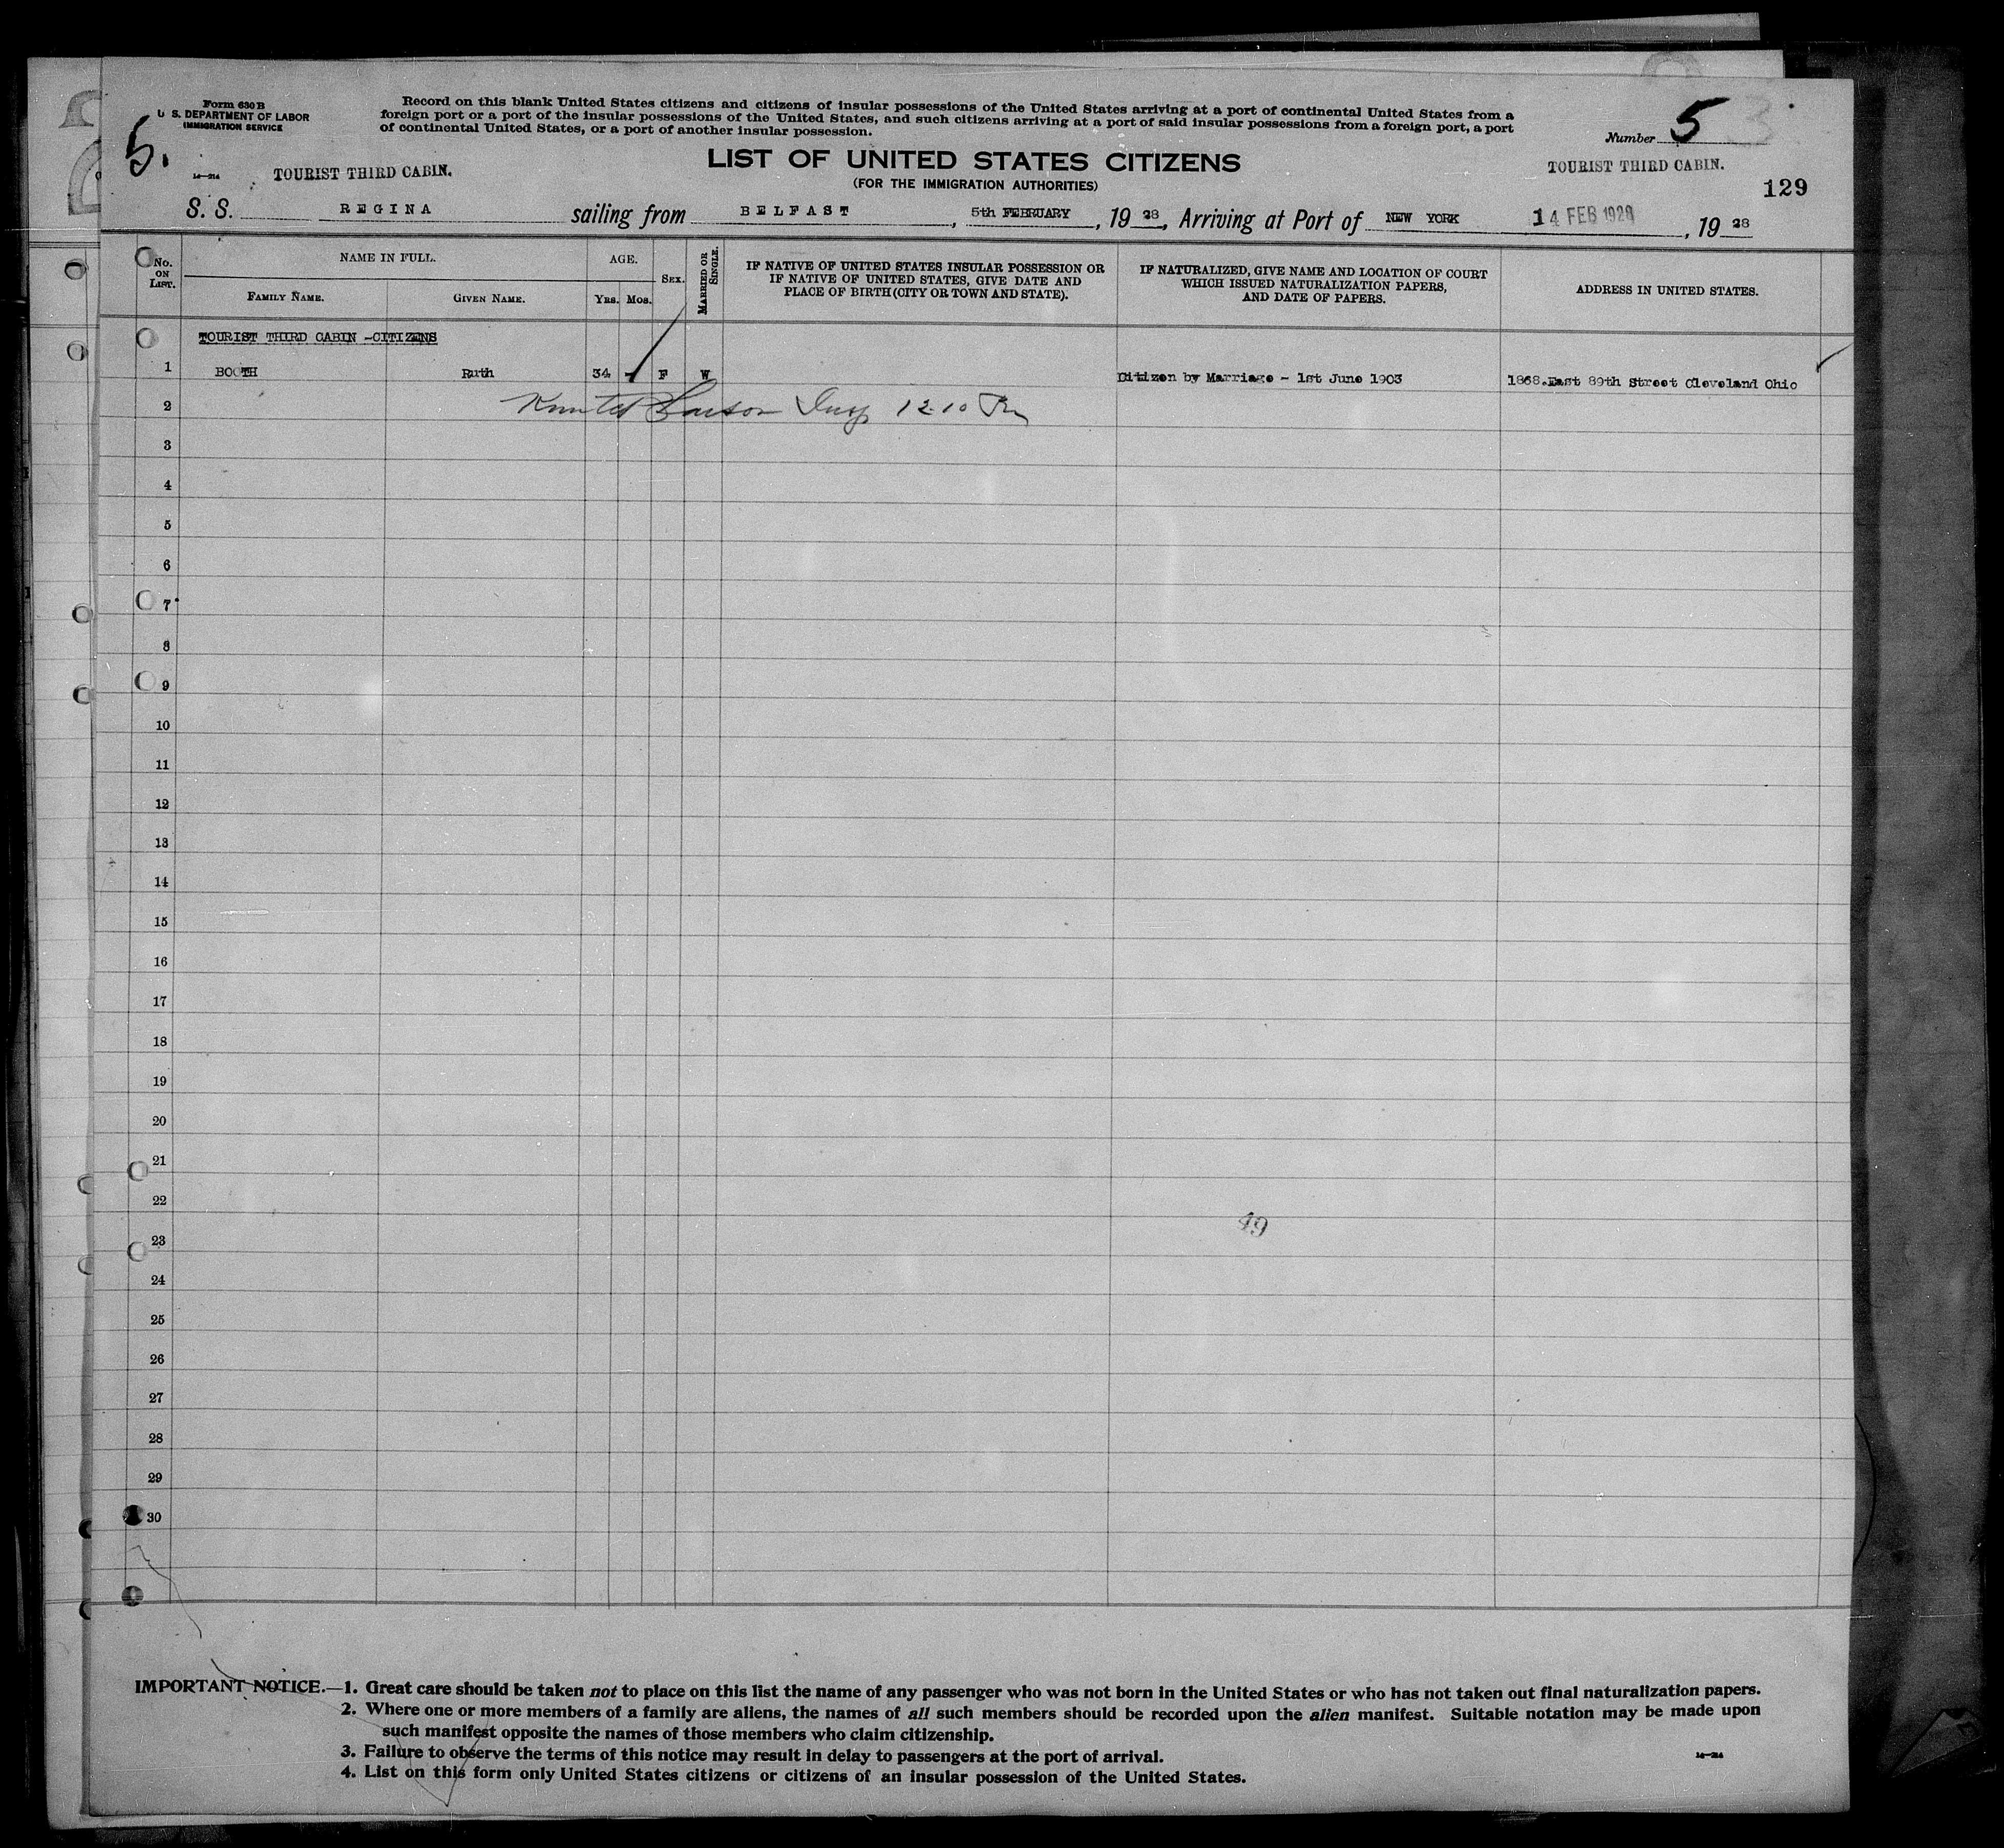 Form 630 B
U. S. DEPARTMENT OF LABOR
IMMIGRATION SERVICE
5.
14—214
TOURIST THIRD CABIN.
Record on this blank United States citizens and citizens of insular possessions of the United States arriving at a port of continental United States from a
foreign port or a port of the insular possessions of the United States, and such citizens arriving at a port of said insular possessions from a foreign port, a port
of continental United States, or a port of another insular possession.
LIST OF UNITED STATES CITIZENS
(FOR THE IMMIGRATION AUTHORITIES)
Number 5
TOURIST THIRD CABIN.
129
S. S. REGINA sailing from BELFAST, 5th FEBRUARY, 19 28, Arriving at Port of NEW YORK 14 FEB 1928, 19 28
No. ON LIST.
NAME IN FULL.
FAMILY NAME.
GIVEN NAME.
AGE.
YRS. MOS.
SEX.
MARRIED OR SINGLE.
IF NATIVE OF UNITED STATES INSULAR POSSESSION OR
IF NATIVE OF UNITED STATES, GIVE DATE AND
PLACE OF BIRTH (CITY OR TOWN AND STATE).
IF NATURALIZED, GIVE NAME AND LOCATION OF COURT
WHICH ISSUED NATURALIZATION PAPERS,
AND DATE OF PAPERS.
ADDRESS IN UNITED STATES.
TOURIST THIRD CABIN -CITIZENS
1 BOOTH Ruth 34 - F W Citizen by Marriage - 1st June 1903 1868.East 89th Street Cleveland Ohio
2 Insp 12.10
3
4
5
6
7
8
9
10
11
12
13
14
15
16
17
18
19
20
21
22
49
23
24
25
26
27
28
29
30
IMPORTANT NOTICE.—1. Great care should be taken not to place on this list the name of any passenger who was not born in the United States or who has not taken out final naturalization papers.
2. Where one or more members of a family are aliens, the names of all such members should be recorded upon the alien manifest. Suitable notation may be made upon
such manifest opposite the names of those members who claim citizenship.
3. Failure to observe the terms of this notice may result in delay to passengers at the port of arrival.
4. List on this form only United States citizens or citizens of an insular possession of the United States.
14—214